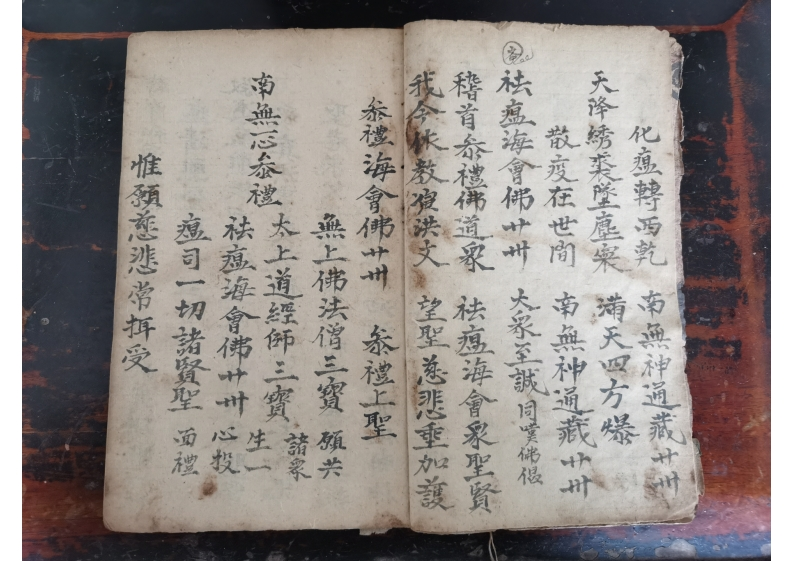 化瘟轉西乾　南無神通藏卄卅
天降綉裘墜塵寰　滿天四方爆
散疫在世間　南無神通藏卄卅
祛瘟海會佛卄卅　大眾至誠同嘆佛偈
稽首叅禮佛道眾　祛瘟海會眾聖賢
我今依教宣洪文　望聖慈悲垂加護
叅禮海會佛卄卅　叅禮上聖
無上佛法僧三寶　願共
南無一心叅禮　太上道經師三寶　諸眾
生一
祛瘟海會佛卄卅　心投
瘟司一切諸賢聖　面禮
惟願慈悲常攝受